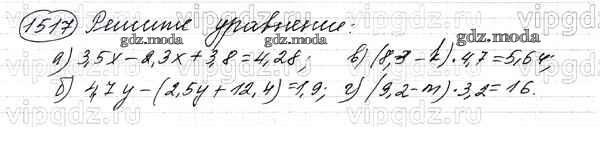 1517 Решите уравнение:
а) 3,5x – 2,3x + 3,8 = 4,28; в) (8,3 – k) · 4,7 = 5,64;
б) 4,7y – (2,5y + 12,4) = 1,9; г) (9,2 – m) · 3,2 = 16.
gdz.moda
gdz.moda
gdz.moda
vipgdz
vipgdz
vipgdz